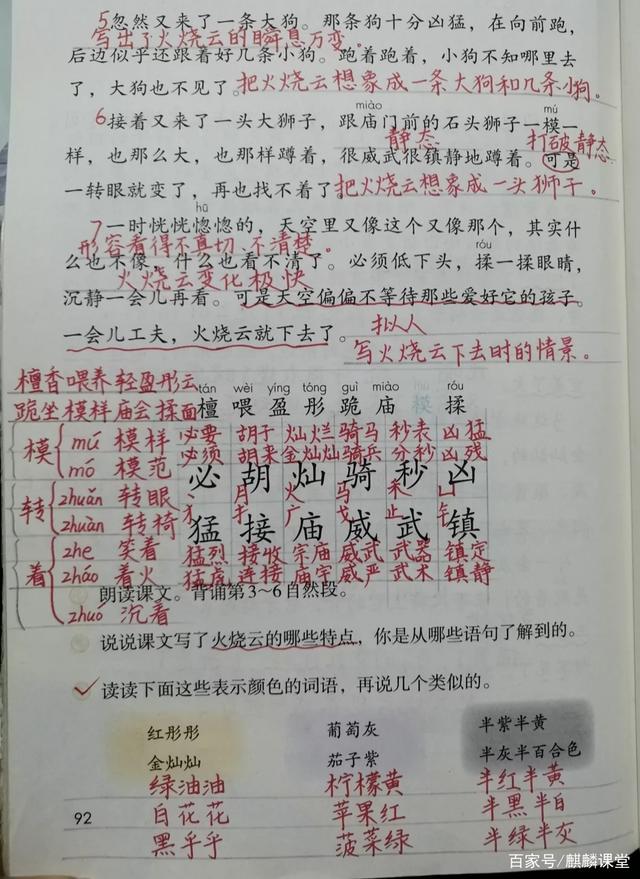 5忽然又来了一条大狗。那条狗十分凶猛,在向前跑,
写出了火烧云的瞬息万变。
后边似乎还跟着好几条小狗。跑着跑着,小狗不知哪里去
了,大狗也不见了。把火烧云想象成一条大狗和几条小狗。
miào mú
6接着又来了一头大狮子,跟庙门前的石头狮子一模一
静态 打破静态
样,也那么大,也那样蹲着,很威武很镇静地蹲着。可是
一转眼就变了,再也找不着了。把火烧云想象成一头狮子。
hū
7一时恍恍惚惚的,天空里又像这个又像那个,其实什
形容看得不真切、不清楚。
róu
么也不像,什么也看不清了。必须低下头,揉一揉眼睛,
火烧云变化极快
沉静一会儿再看。可是天空偏偏不等待那些爱好它的孩子。
一会儿工夫,火烧云就下去了。拟人
写火烧云下去时的情景。
檀香喂养轻盈彤云
tán wèi yíng tóng guì miào róu
跪坐模样庙会揉面
檀 喂 盈 彤 跪 庙 模 揉
模 mú 模样
mó 模范
转 zhuǎn 转眼
zhuàn 转椅
着 zhe 笑着
zháo 着火
zhuó 沉着
必要 胡子 灿烂 骑马 秒表 凶猛
必须 胡来 金灿灿 骑兵 分秒 凶残
必 胡 灿 骑 秒 凶
月 火 马 禾 凵
犭 扌 广 戈 止 钅
猛 接 庙 威 武 镇
猛烈 接收 宗庙 威武 武器 镇定
猛虎 连接 庙宇 威严 武术 镇静
朗读课文。背诵第3~6自然段。
说说课文写了火烧云的哪些特点,你是从哪些语句了解到的。
读读下面这些表示颜色的词语,再说几个类似的。
红彤彤 葡萄灰 半紫半黄
金灿灿 茄子紫 半灰半百合色
绿油油 柠檬黄 半红半黄
白花花 苹果红 半黑半白
黑乎乎 菠菜绿 半绿半灰
92
百家号/麒麟课堂